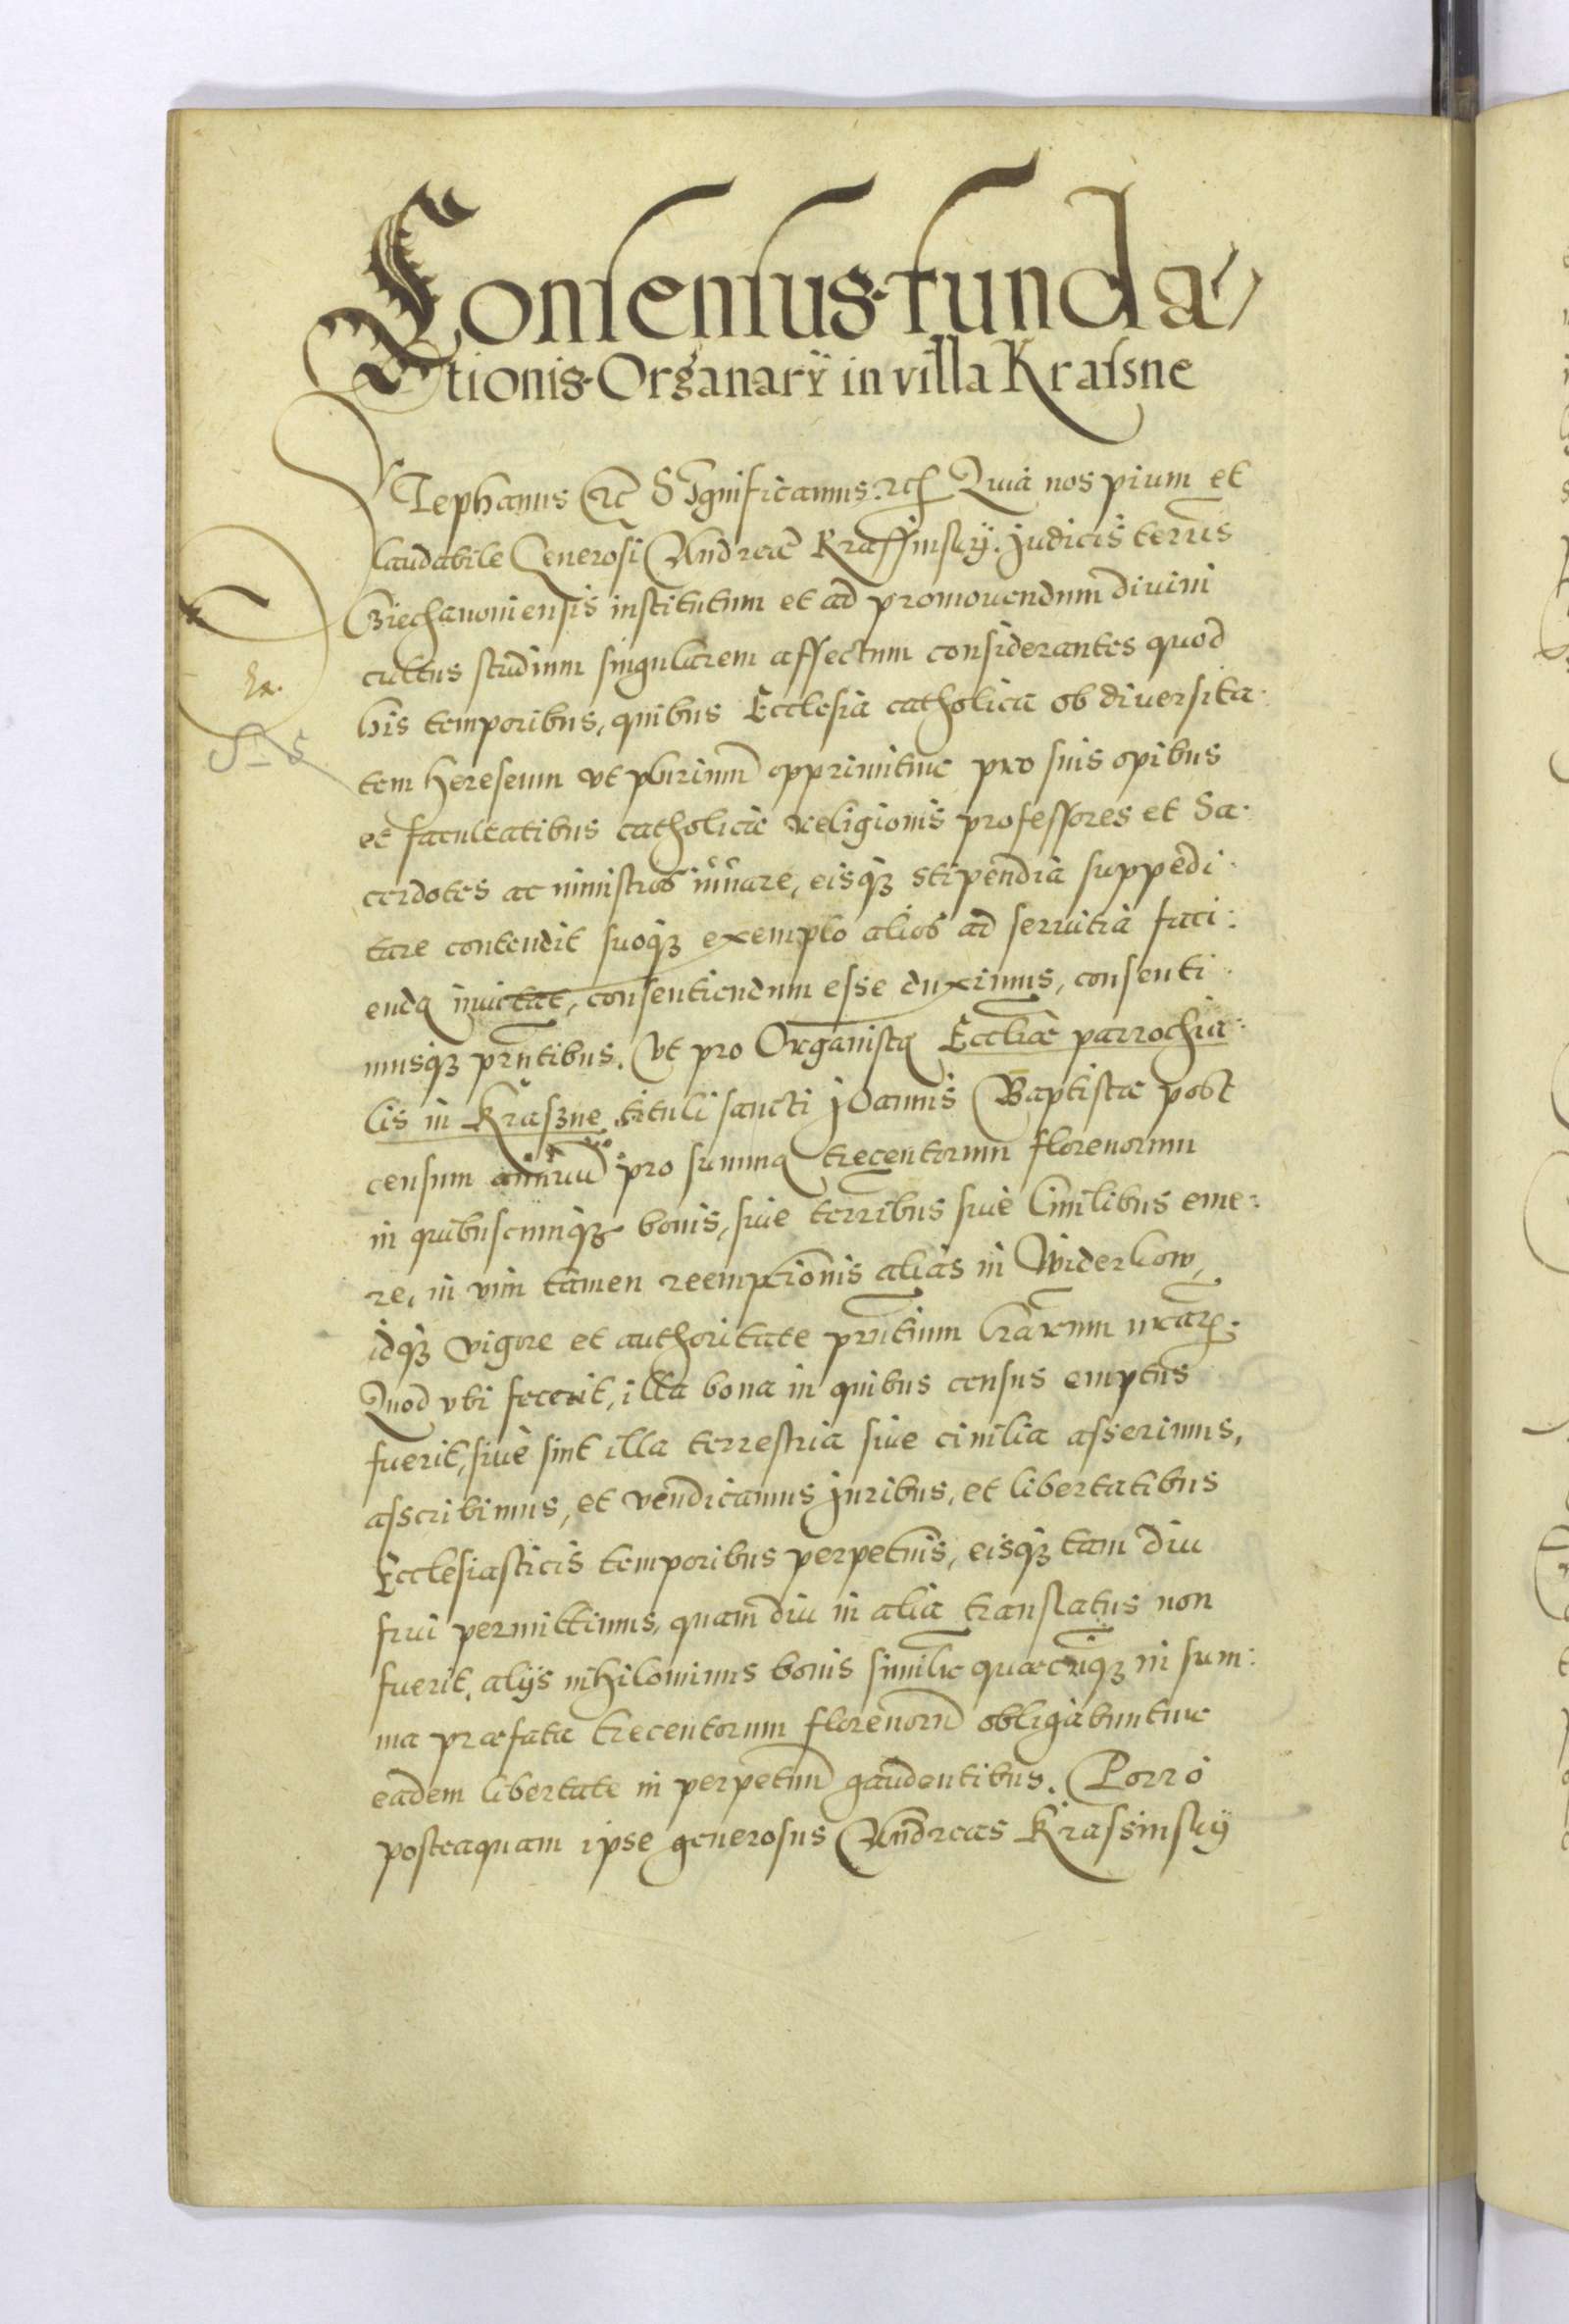 Consensus funda
tionis Organarÿ in villa Krassne
Stephanus etc Significamus etc Quia nos pium et
laudabile Generosi Andreae Krassinskÿ Judicis terrīs
Ciechanoviensis institutum et ad promouendum diuini
cultus studium singularem affectum considerantes quod
his temporibus, quibus Ecclesia catholica ob diuersita
tem hereseum vt plurimū opprimitur pro suis opibus
et facultatibus catholicae religionis professores et Sa
cerdotes ac ministros iuuare, eisq3 stipendia suppedi
tare contendit suoq3 exemplo alios ad seruitia faci
enda inuitat, consentiendum esse duximus, consenti
musq3 pñtibus. Vt pro Organista Eccliae parrochia
lis in Kraszne tituli sancti Joannis Baptistae post
censum annuū pro summa trecentorum florenorum
in quibuscunq3 bonis, siue terrībus siue Ciuilibus eme
re, in vim tamen reemptionis alias in Widerkow,
idq3 vigore et authoritate pñtium lrārum nrārum.
Quod vbi fecerit, illa bona in quibus census emptus
fuerit, siue sint illa terrestria siue ciuilia asserimus,
asscribimus, et vendicamus juribus, et libertatibus
Ecclesiasticis temporibus perpetuis, eisq3 tam diu
frui permittimus, quamdiu in alia translatus non
fuerit, alÿs nihilominus bonis similr quaecūq3 in sum
ma praefata trecentorum florenorū obligabuntur
eadem libertate in perpetuū gaudentibus. Porro
posteaquam ipse generosus Andreas Krassinskÿ